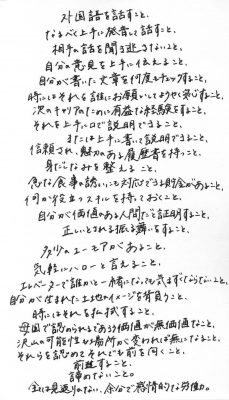 外国語を話すこと、
なるべく上手に発音して話すこと、
相手の話を聞き逃さないこと、
自分の意見を上手に伝えること、
自分が書いた文章を何度もチェックすること、
時にはそれを誰かにお願いしてようやく気づくこと、
次のキャリアのために有益な経験をすること、
それを上手に口で説明できること、
または上手に書いて説明できること、
信頼され、魅力のある履歴書を持つこと、
身だしなみを整えること、
急な食事の誘いにも対応できる貯金があること、
何か役立つスキルを持っておくこと、
自分が価値のある人間だと証明すること、
正しいとされる振る舞いをすること、
多少のユーモアがあること、
気軽にハローと言えること、
エレベーターで誰かと一緒になっても気まずくならないこと、
自分が生まれた土地のイメージを背負うこと、
時にはそれを払拭すること、
母国で認められるであろう価値が無価値なこと、
沢山の可能性は場所が変われば無になること、
それらを認めてそれでも前を向くこと、
前進すること、
諦めないこと。
全ては見返りのない、余分で感情的な労働力。